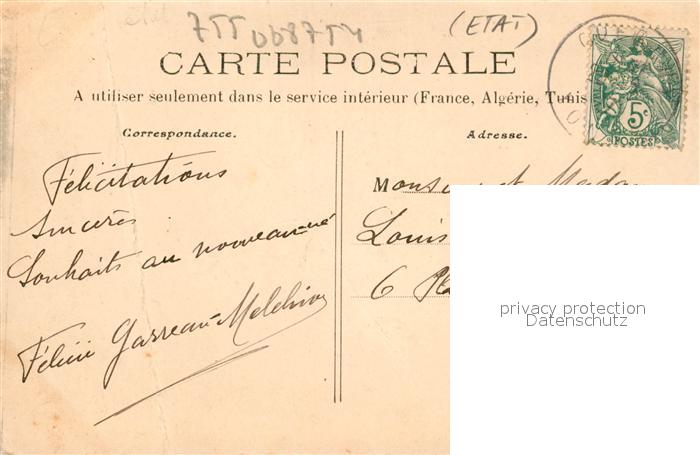 7TT008754
(ETAT)
CARTE POSTALE
A utiliser seulement dans le service intérieur (France, Algérie, Tunis
Correspondance.
Adresse.
5c
POSTES
Félicitations
sincères
Souhaits au nouveau-né
Félicie Gasreau-Melchior
Monsieur et Madam
Louis
6 Pl
privacy protection
Datenschutz